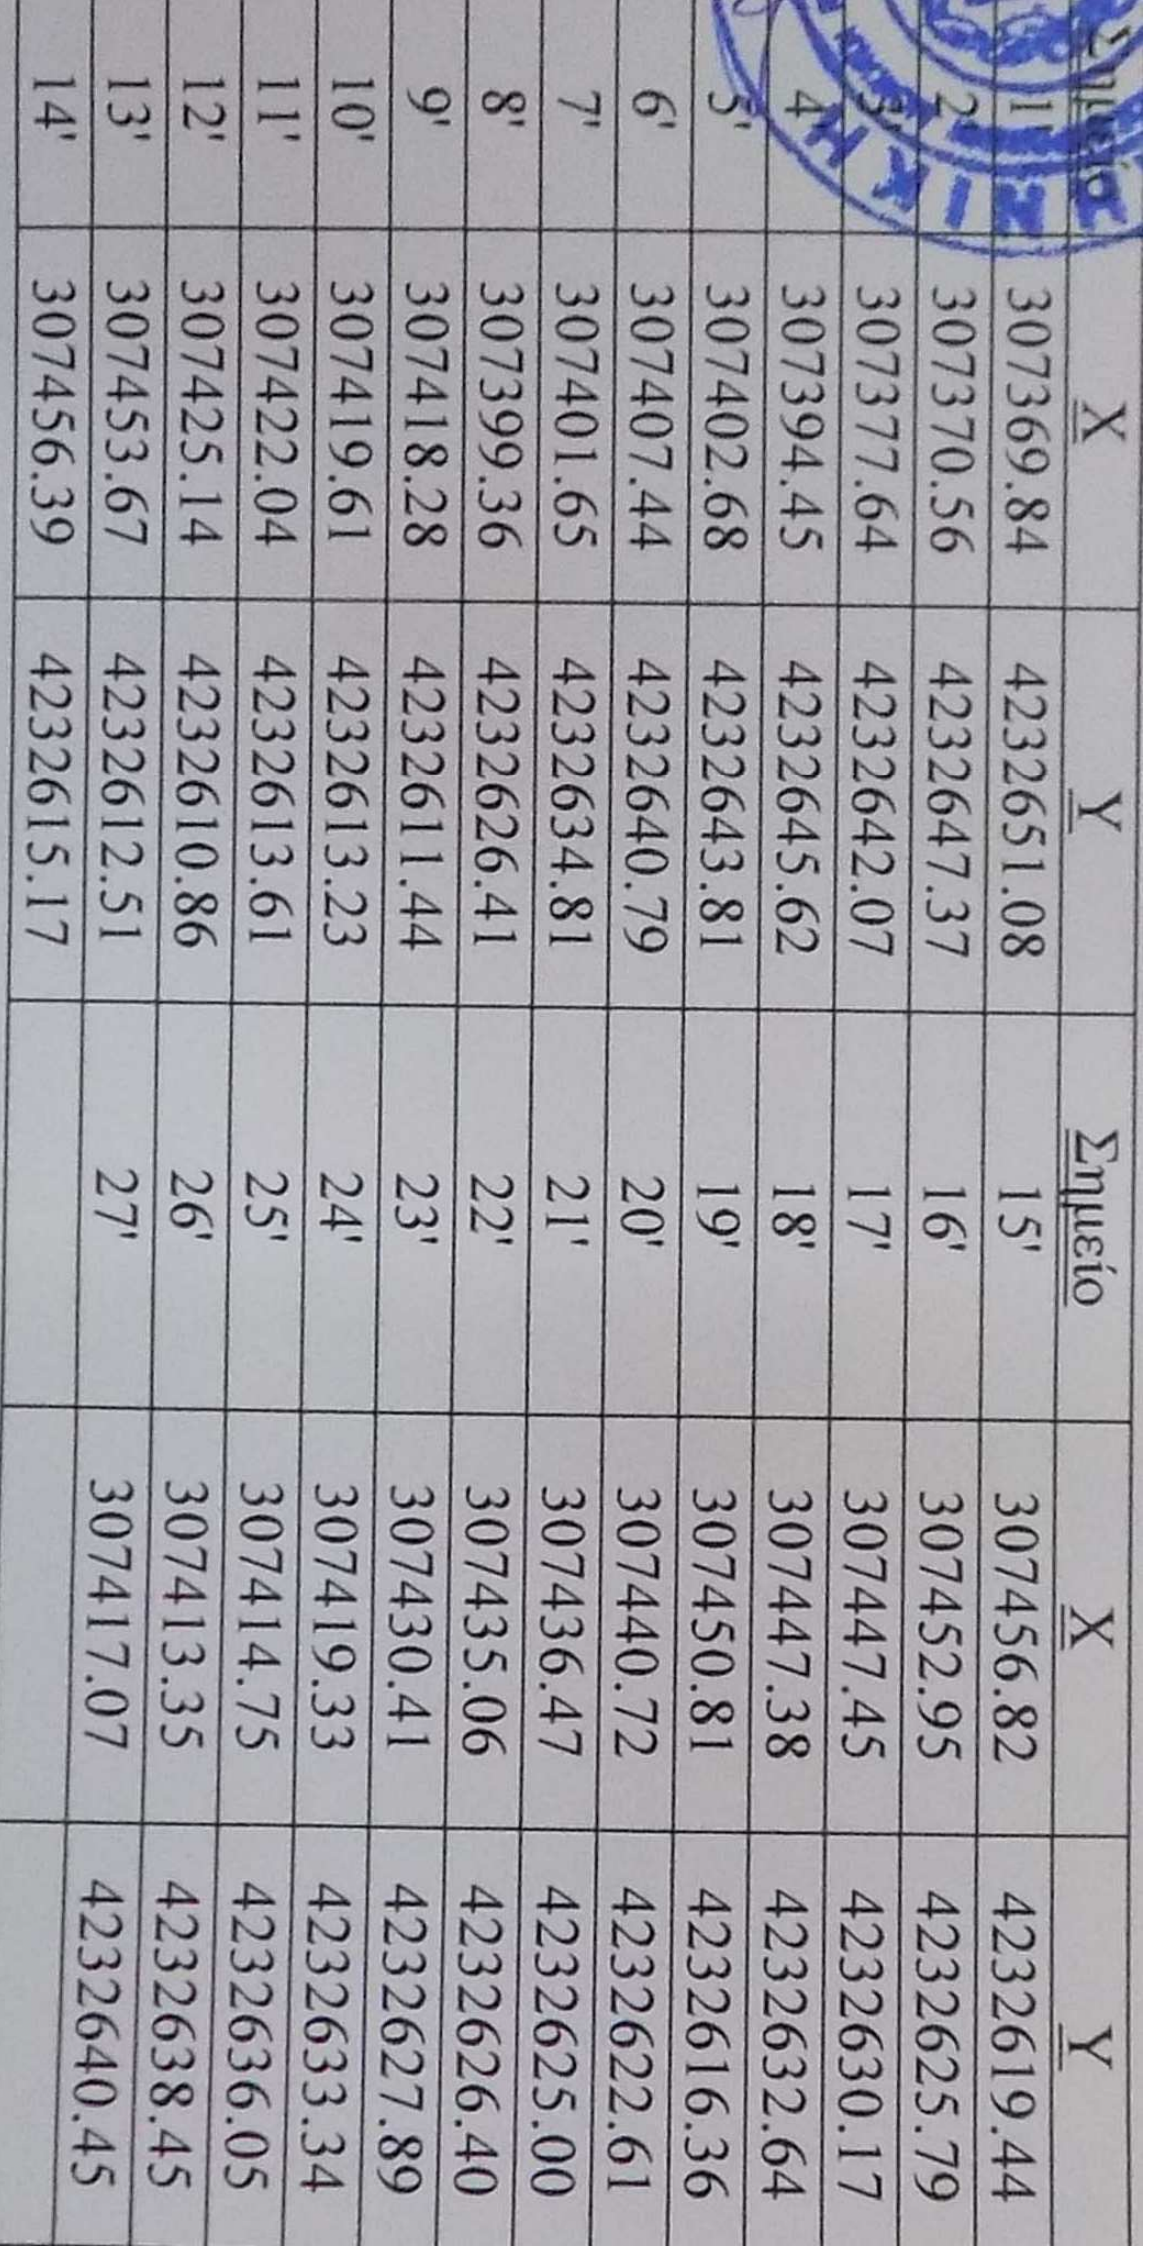 Σημείο X Y Σημείο X Y
1' 307369.84 4232651.08 15' 307456.82 4232619.44
2' 307370.56 4232647.37 16' 307452.95 4232625.79
3' 307377.64 4232642.07 17' 307447.45 4232630.17
4' 307394.45 4232645.62 18' 307447.38 4232632.64
5' 307402.68 4232643.81 19' 307450.81 4232616.36
6' 307407.44 4232640.79 20' 307440.72 4232622.61
7' 307401.65 4232634.81 21' 307436.47 4232625.00
8' 307399.36 4232626.41 22' 307435.06 4232626.40
9' 307418.28 4232611.44 23' 307430.41 4232627.89
10' 307419.61 4232613.23 24' 307419.33 4232633.34
11' 307422.04 4232613.61 25' 307414.75 4232636.05
12' 307425.14 4232610.86 26' 307413.35 4232638.45
13' 307453.67 4232612.51 27' 307417.07 4232640.45
14' 307456.39 4232615.17
ΝΙΚΗ